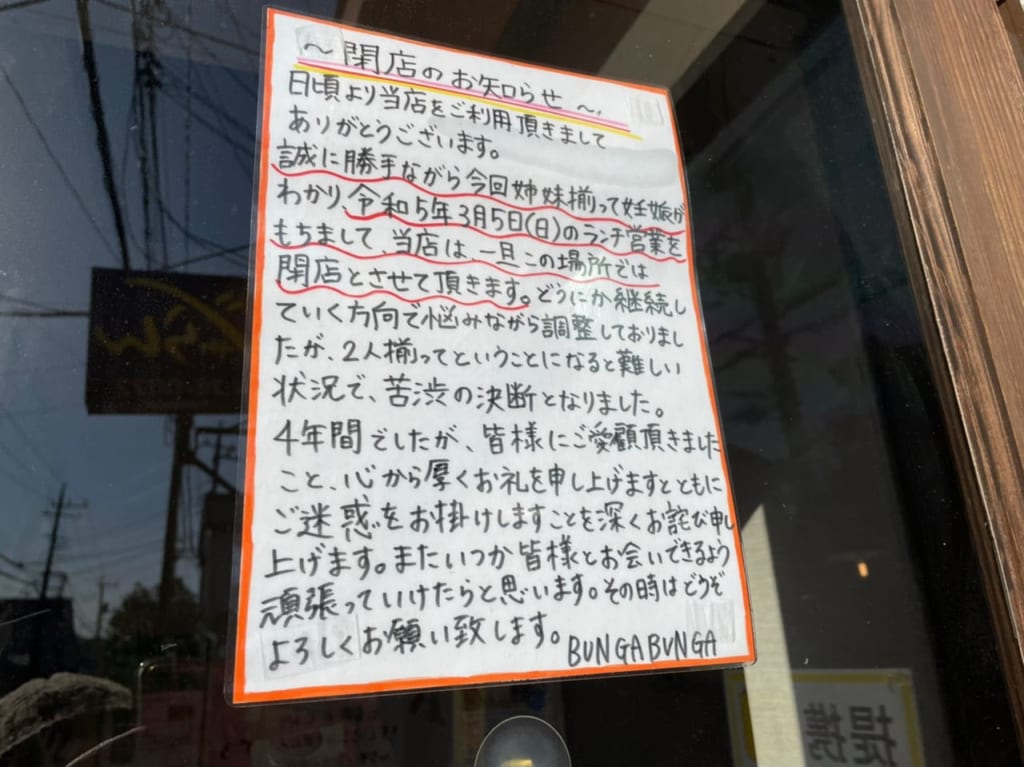 ～閉店のお知らせ～
日頃より当店をご利用頂きまして
ありがとうございます。
誠に勝手ながら今回姉妹揃って妊娠が
わかり、令和5年3月5日(日)のランチ営業を
もちまして、当店は、一旦この場所では
閉店とさせて頂きます。どうにか継続し
ていく方向で悩みながら調整しておりまし
たが、2人揃ってということになると難しい
状況で、苦渋の決断となりました。
4年間でしたが、皆様にご愛顧頂きました
こと、心から厚くお礼を申し上げますとともに
ご迷惑をお掛けしますことを深くお詫び申し
上げます。またいつか皆様とお会いできるよう
頑張っていけたらと思います。その時はどうぞ
よろしくお願い致します。 BUNGABUNGA
提携